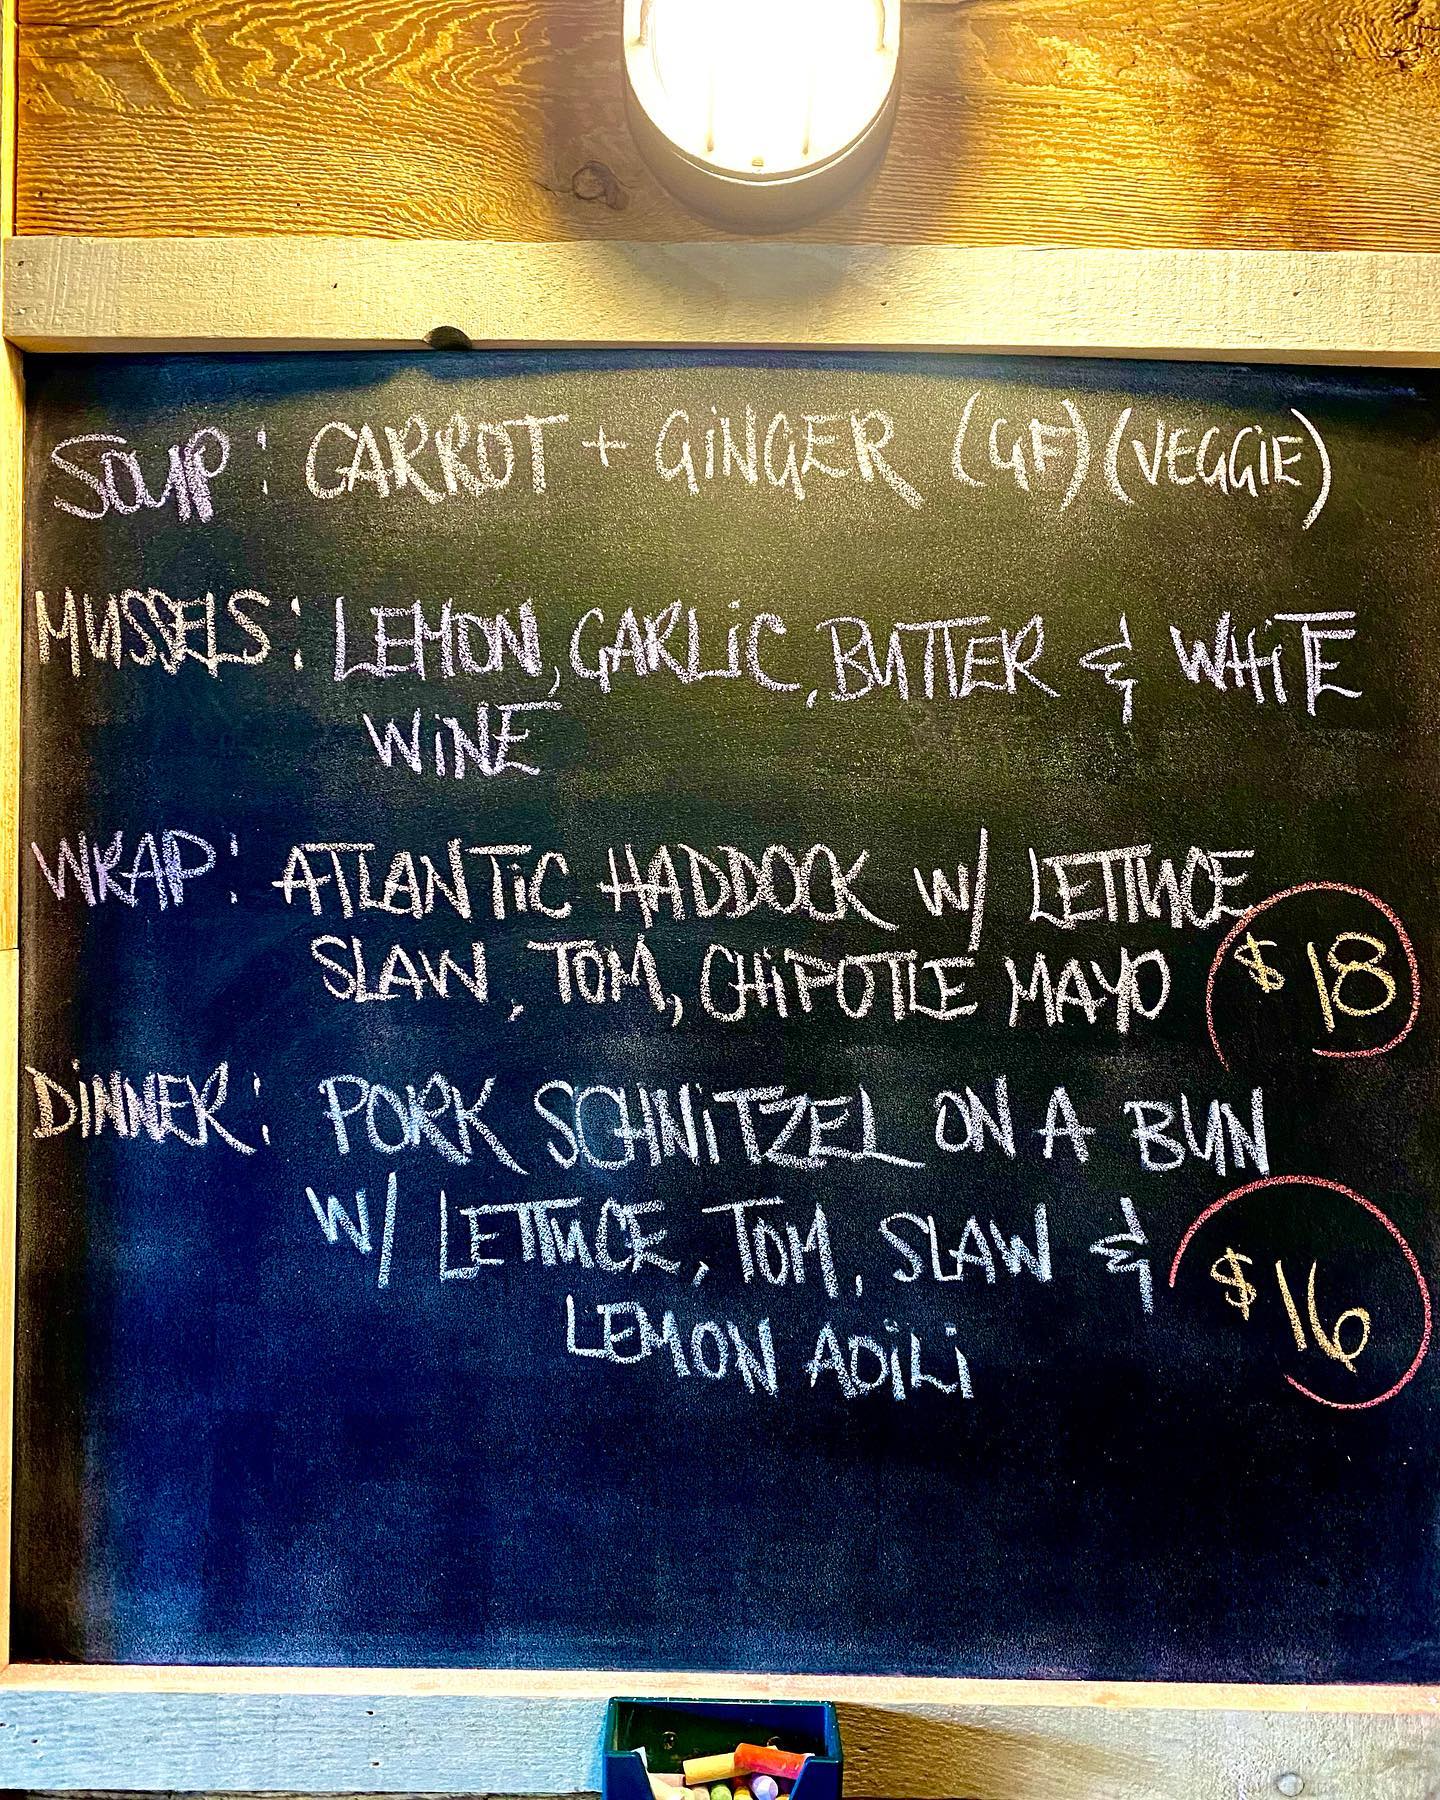 SOUP: CARROT + GINGER (GF) (VEGGIE)
MUSSELS: LEMON, GARLIC, BUTTER & WHITE
WINE
WRAP: ATLANTIC HADDOCK W/ LETTUCE
SLAW, TOM, CHIPOTLE MAYO $18
DINNER: PORK SCHNITZEL ON A BUN
W/ LETTUCE, TOM, SLAW &
$16
LEMON AOILI